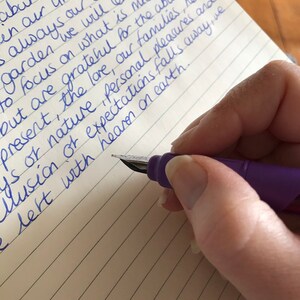 our
always our
garden we will
to focus on what is
but are grateful for the
present, the love, our families,
ys of nature, personal pleasures and
illusion of expectations falls away we
e left with heaven on earth.